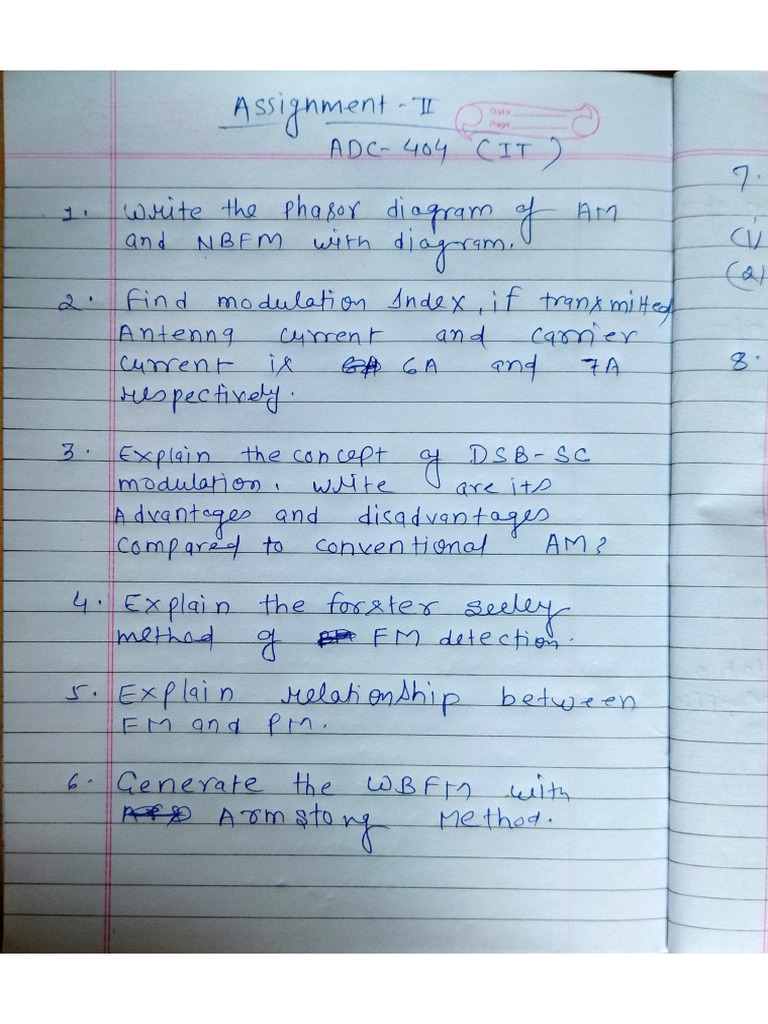 Assignment - II
Date
Page
ADC-404 (IT)
1. Write the Phasor diagram of AM
and NBFM with diagram.
2. Find modulation Index, if tranxmitted
Antenna current and carrier
current is 6A and 7A
respectively.
3. Explain the concept of DSB-SC
modulation. write are its
Advantages and disadvantages
compared to conventional AM?
4. Explain the forster seeley
method of FM detection.
5. Explain relationship between
FM and PM.
6. Generate the WBFM with
Armstong Method.
7.
(1)
(2)
8.